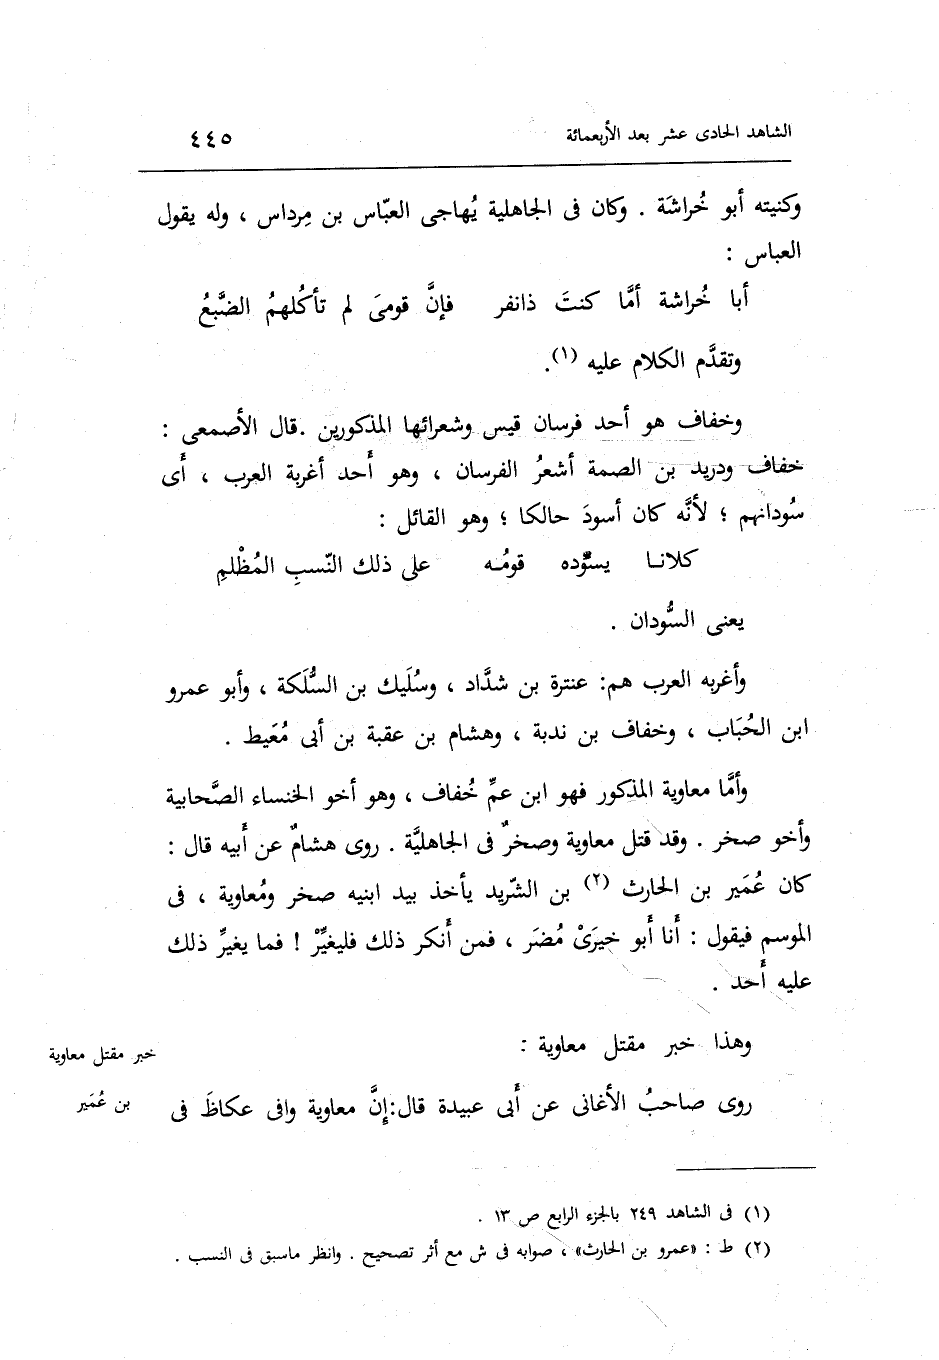 الشاهد الحادى عشر بعد الأربعمائة ٤٤٥
وكنيته أبو خُراشَة . وكان فى الجاهلية يُهاجى العبّاس بن مِرداس ، وله يقول
العباس :
أبا خُراشة أمَّا كنتَ ذانفر فإنَّ قومىَ لم تأكُلهمُ الضَّبُعُ
وتقدَّم الكلام عليه (١).
وخفاف هو أحد فرسان قيس وشعرائها المذكورين .قال الأصمعى :
خفاف ودريد بن الصمة أشعرُ الفرسان ، وهو أَحد أغربة العرب ، أَى
سُودانهم ؛ لأنَّه كان أسودَ حالكا ؛ وهو القائل :
كلانا يسوّده قومُه على ذلك النّسبِ المُظْلمِ
يعنى السُّودان .
وأغربه العرب هم: عنترة بن شدَّاد ، وسُلَيك بن السُّلَكة ، وأبو عمرو
ابن الحُبَاب ، وخفاف بن ندبة ، وهشام بن عقبة بن أبى مُعَيط .
وأمَّا معاوية المذكور فهو ابن عمِّ خُفاف ، وهو أخو الخنساء الصَّحابية
وأخو صخر . وقد قتل معاوية وصخرٌ فى الجاهليَّة . روى هشامٌ عن أَبيه قال :
كان عُمَير بن الحارث (٢) بن الشّريد يأخذ بيد ابنيه صخر ومُعاوية ، فى
الموسم فيقول : أَنا أَبو خيرَىْ مُضَر ، فمن أَنكر ذلك فليغيِّرْ ! فما يغيرِّ ذلك
عليه أَحد .
وهذا خبر مقتل معاوية :
خبر مقتل معاوية
بن عُمَير
روى صاحبُ الأغانى عن أَبى عبيدة قال:إِنَّ معاوية وافى عكاظَ فى
(١) فى الشاهد ٢٤٩ بالجزء الرابع ص ١٣ .
(٢) ط : «عمرو بن الحارث» ، صوابه فى ش مع أثر تصحيح . وانظر ماسبق فى النسب .